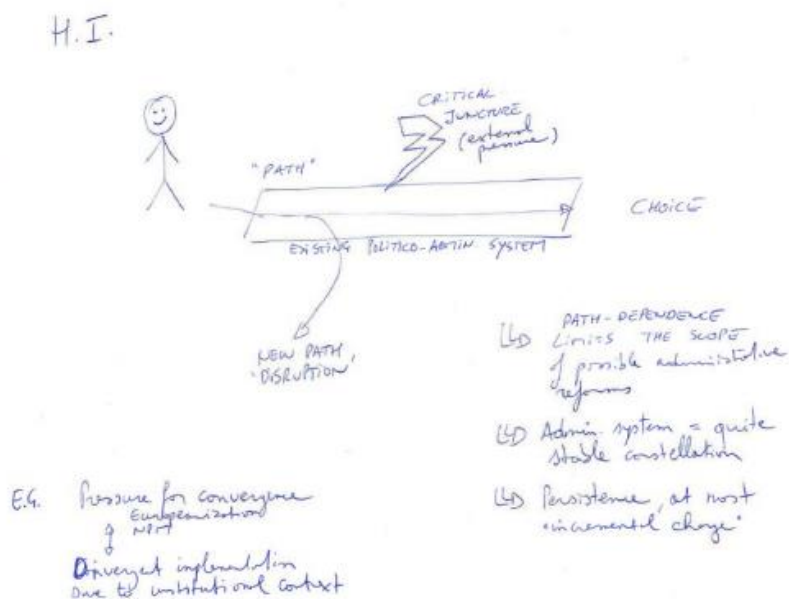 H.I.
CRITICAL
JUNCTURE
(external
pressure)
"PATH"
CHOICE
EXISTING POLITICO-ADMIN. SYSTEM
NEW PATH,
'DISRUPTION'
PATH-DEPENDENCE
LIMITS THE SCOPE
of possible administrative
reforms
Admin. system = quite
stable constellation
Persistence, at most
"incremental change"
E.G. Pressure for convergence
Europeanization
NPM
Divergent implementation
Due to institutional context